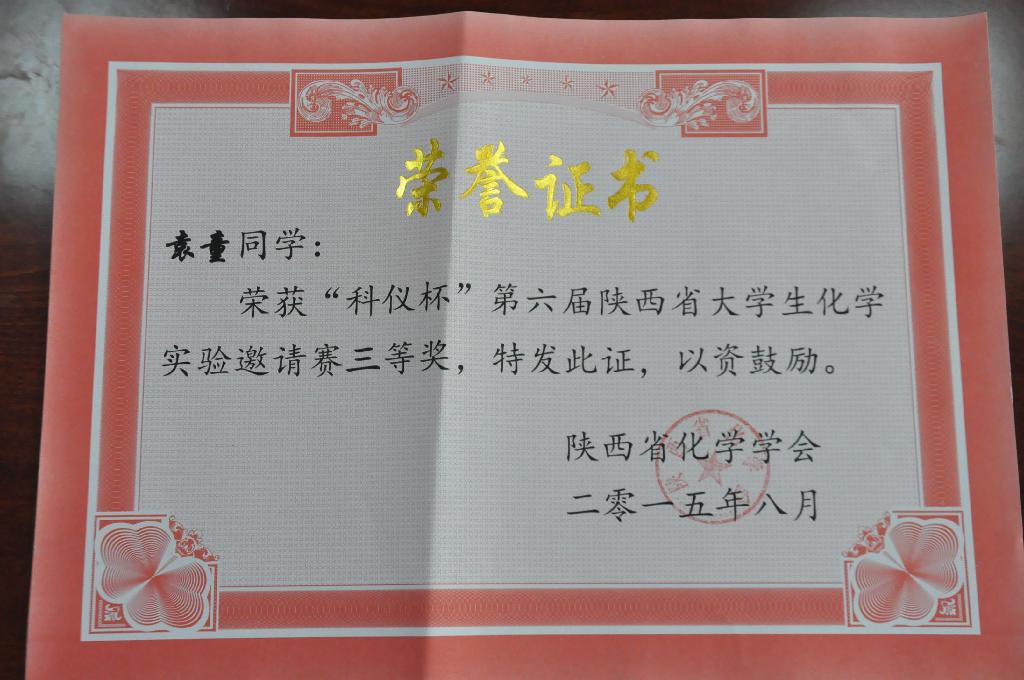 荣誉证书
袁童同学：
荣获“科仪杯”第六届陕西省大学生化学
实验邀请赛三等奖，特发此证，以资鼓励。
陕西省化学学会
二零一五年八月